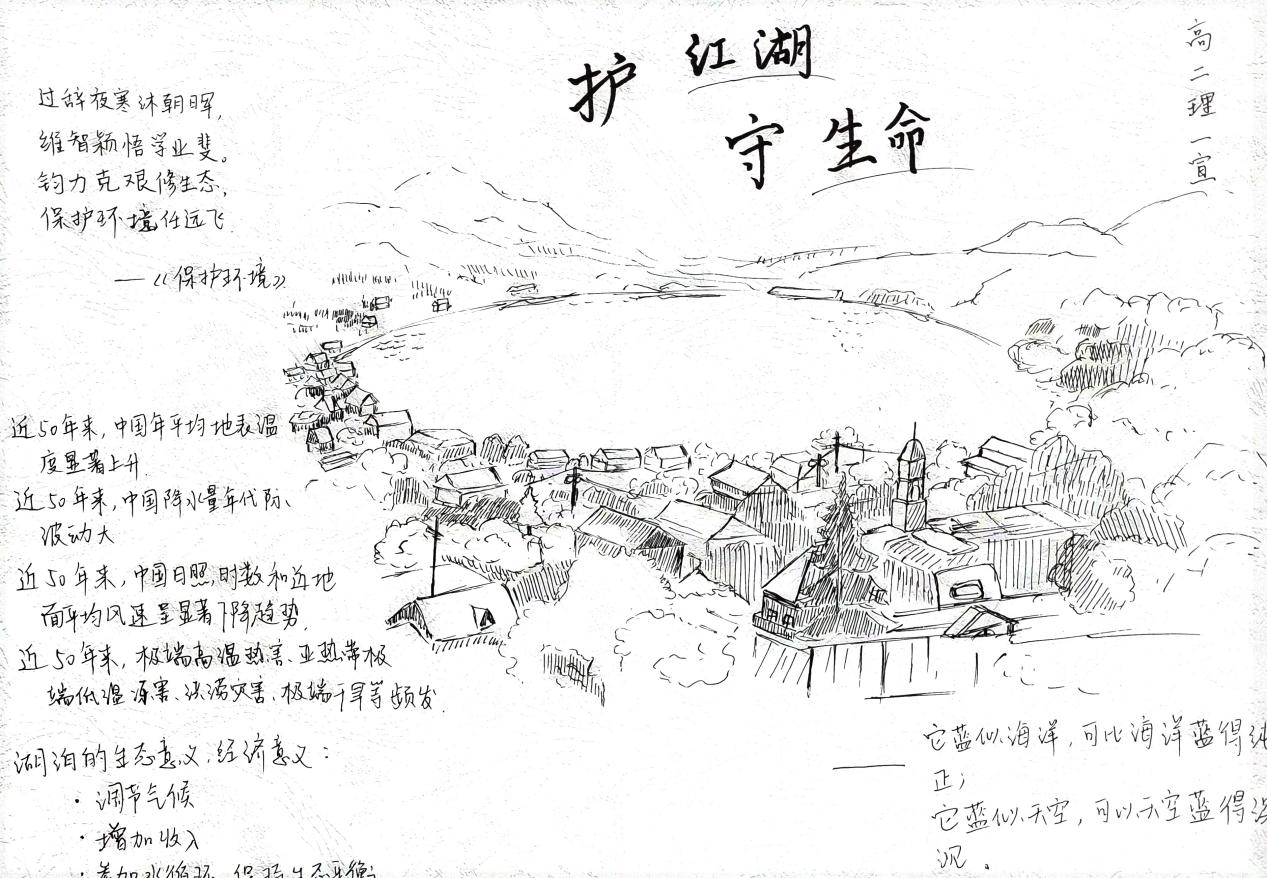 护江湖
守生命
高二理一宣
过辞夜寒沐朝晖,
维智颖悟学业斐。
钧力克艰修生态,
保护环境任远飞
——《保护环境》
近50年来,中国年平均地表温
度显著上升.
近50年来,中国降水量年代际、
波动大
近50年来,中国日照时数和近地
面平均风速呈显著下降趋势.
近50年来,极端高温热害、亚热带极
端低温冻害、洪涝灾害、极端干旱等频发.
湖泊的生态意义,经济意义:
·调节气候
·增加收入
·参加水循环,保持生态平衡;
它蓝似海洋,可比海洋蓝得纯
正;
它蓝似天空,可比天空蓝得深
沉。